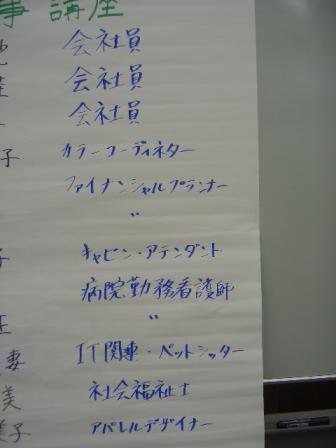 事講座
会社員
会社員
会社員
子 カラーコーディネター
ファイナンシャルプランナー
〃
キャビン・アテンダント
病院勤務看護師
〃
妻 IT関連・ペットシッター
美 社会福祉士
美子 アパレルデザイナー